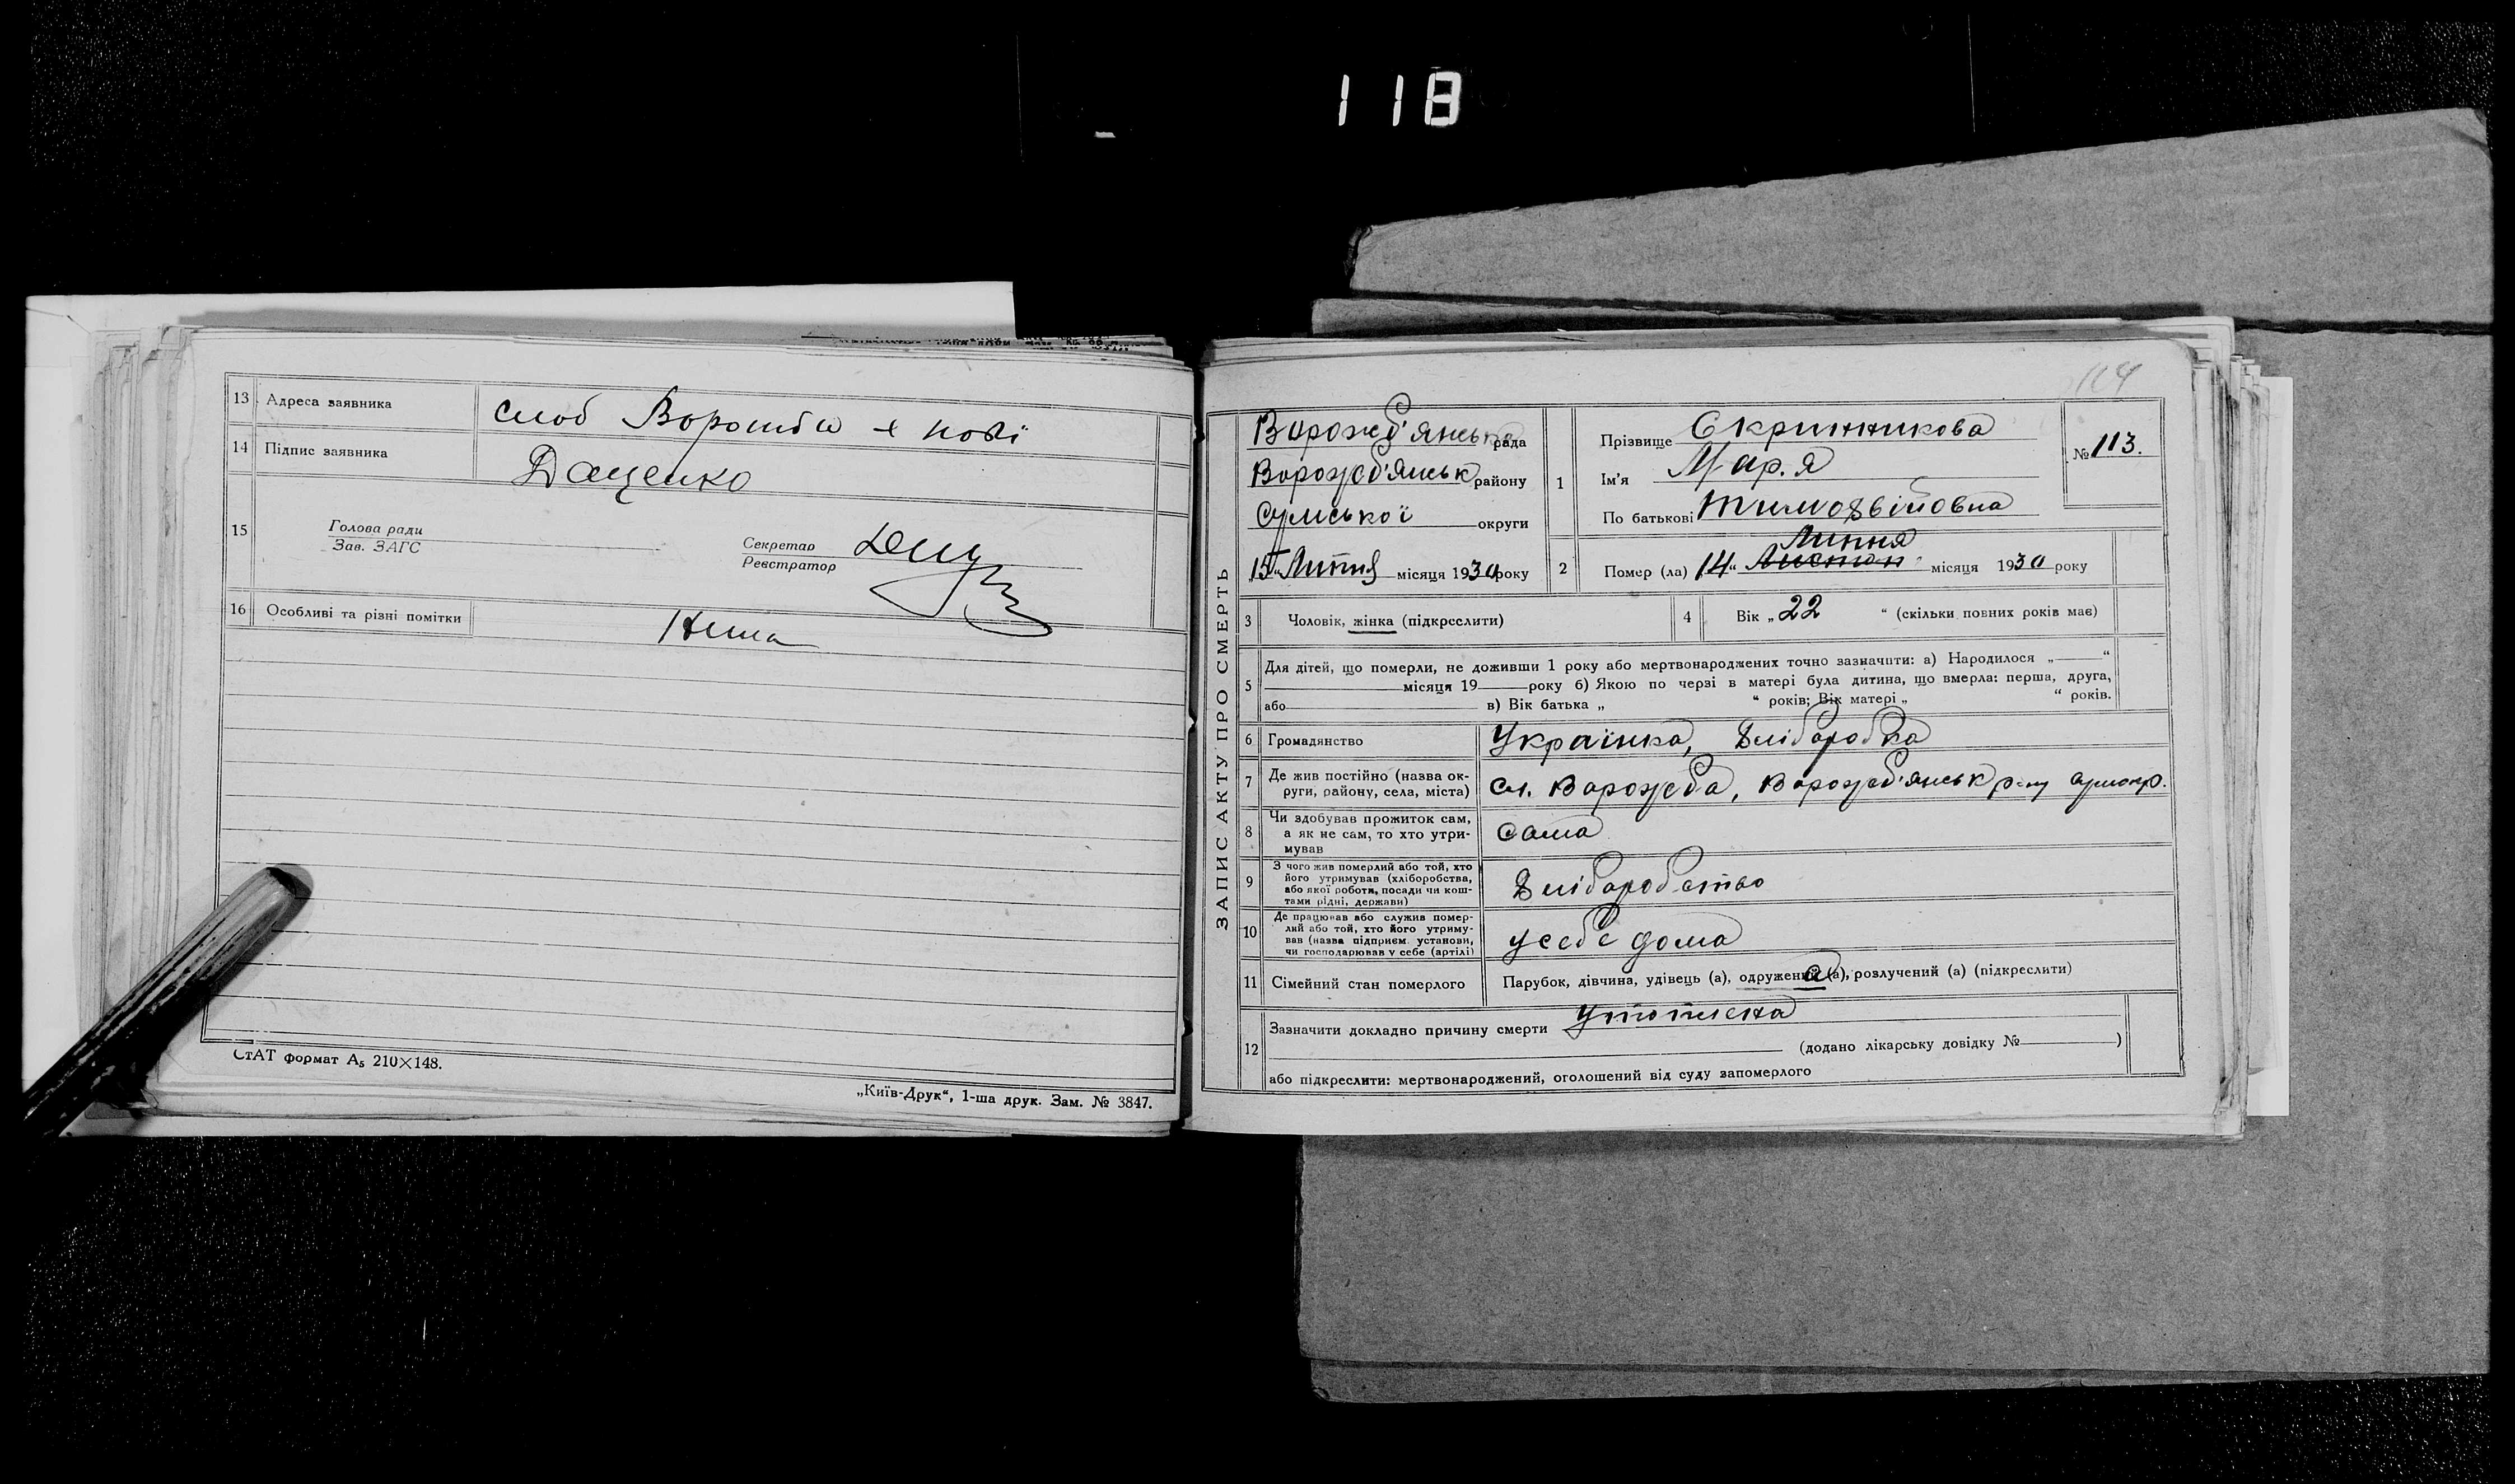 118
13 Адреса заявника слоб Ворожба
14 Підпис заявника Даценко
15 Голова ради
Зав. ЗАГС
Секретар
Реєстратор
16 Особливі та різні помітки Нема
СтАТ формат А₅ 210×148.
„Київ-Друк“, 1-ша друк. Зам. № 3847.
114
ЗАПИС АКТУ ПРО СМЕРТЬ
Ворожб'янська рада
Ворожб'янськ району
Сумської округи
„15“ Липня місяця 1930 року
1 Прізвище Скринникова
Ім'я Мар.я
По батькові Тимофвійовна
№ 113.
Липня
2 Помер (ла) 14“ місяця 1930 року
3 Чоловік, жінка (підкреслити)
4 Вік „ 22 “ (скільки повних років має)
5 Для дітей, що померли, не доживши 1 року або мертвонароджених точно зазначити: а) Народилося „ “
місяця 19 року б) Якою по черзі в матері була дитина, що вмерла: перша, друга,
або в) Вік батька „ “ років; Вік матері „ “ років.
6 Громадянство Українка, Хліборобка
7 Де жив постійно (назва ок-
руги, району, села, міста) сл. Ворожба, Ворожб'янськ р-ну Сум окр.
8 Чи здобував прожиток сам,
а як не сам, то хто утри-
мував сама
9 З чого жив померлий або той, хто
його утримував (хліборобства,
або якої роботи, посади чи кош-
тами рідні, держави) Хліборобство
10 Де працював або служив помер-
лий або той, хто його утриму-
вав (назва підприєм. установи,
чи господарював у себе (артілі) у себе дома
11 Сімейний стан померлого Парубок, дівчина, удівець (а), одружений (а), розлучений (а) (підкреслити)
12 Зазначити докладно причину смерти Утоплена
(додано лікарську довідку № )
або підкреслити: мертвонароджений, оголошений від суду запомерлого